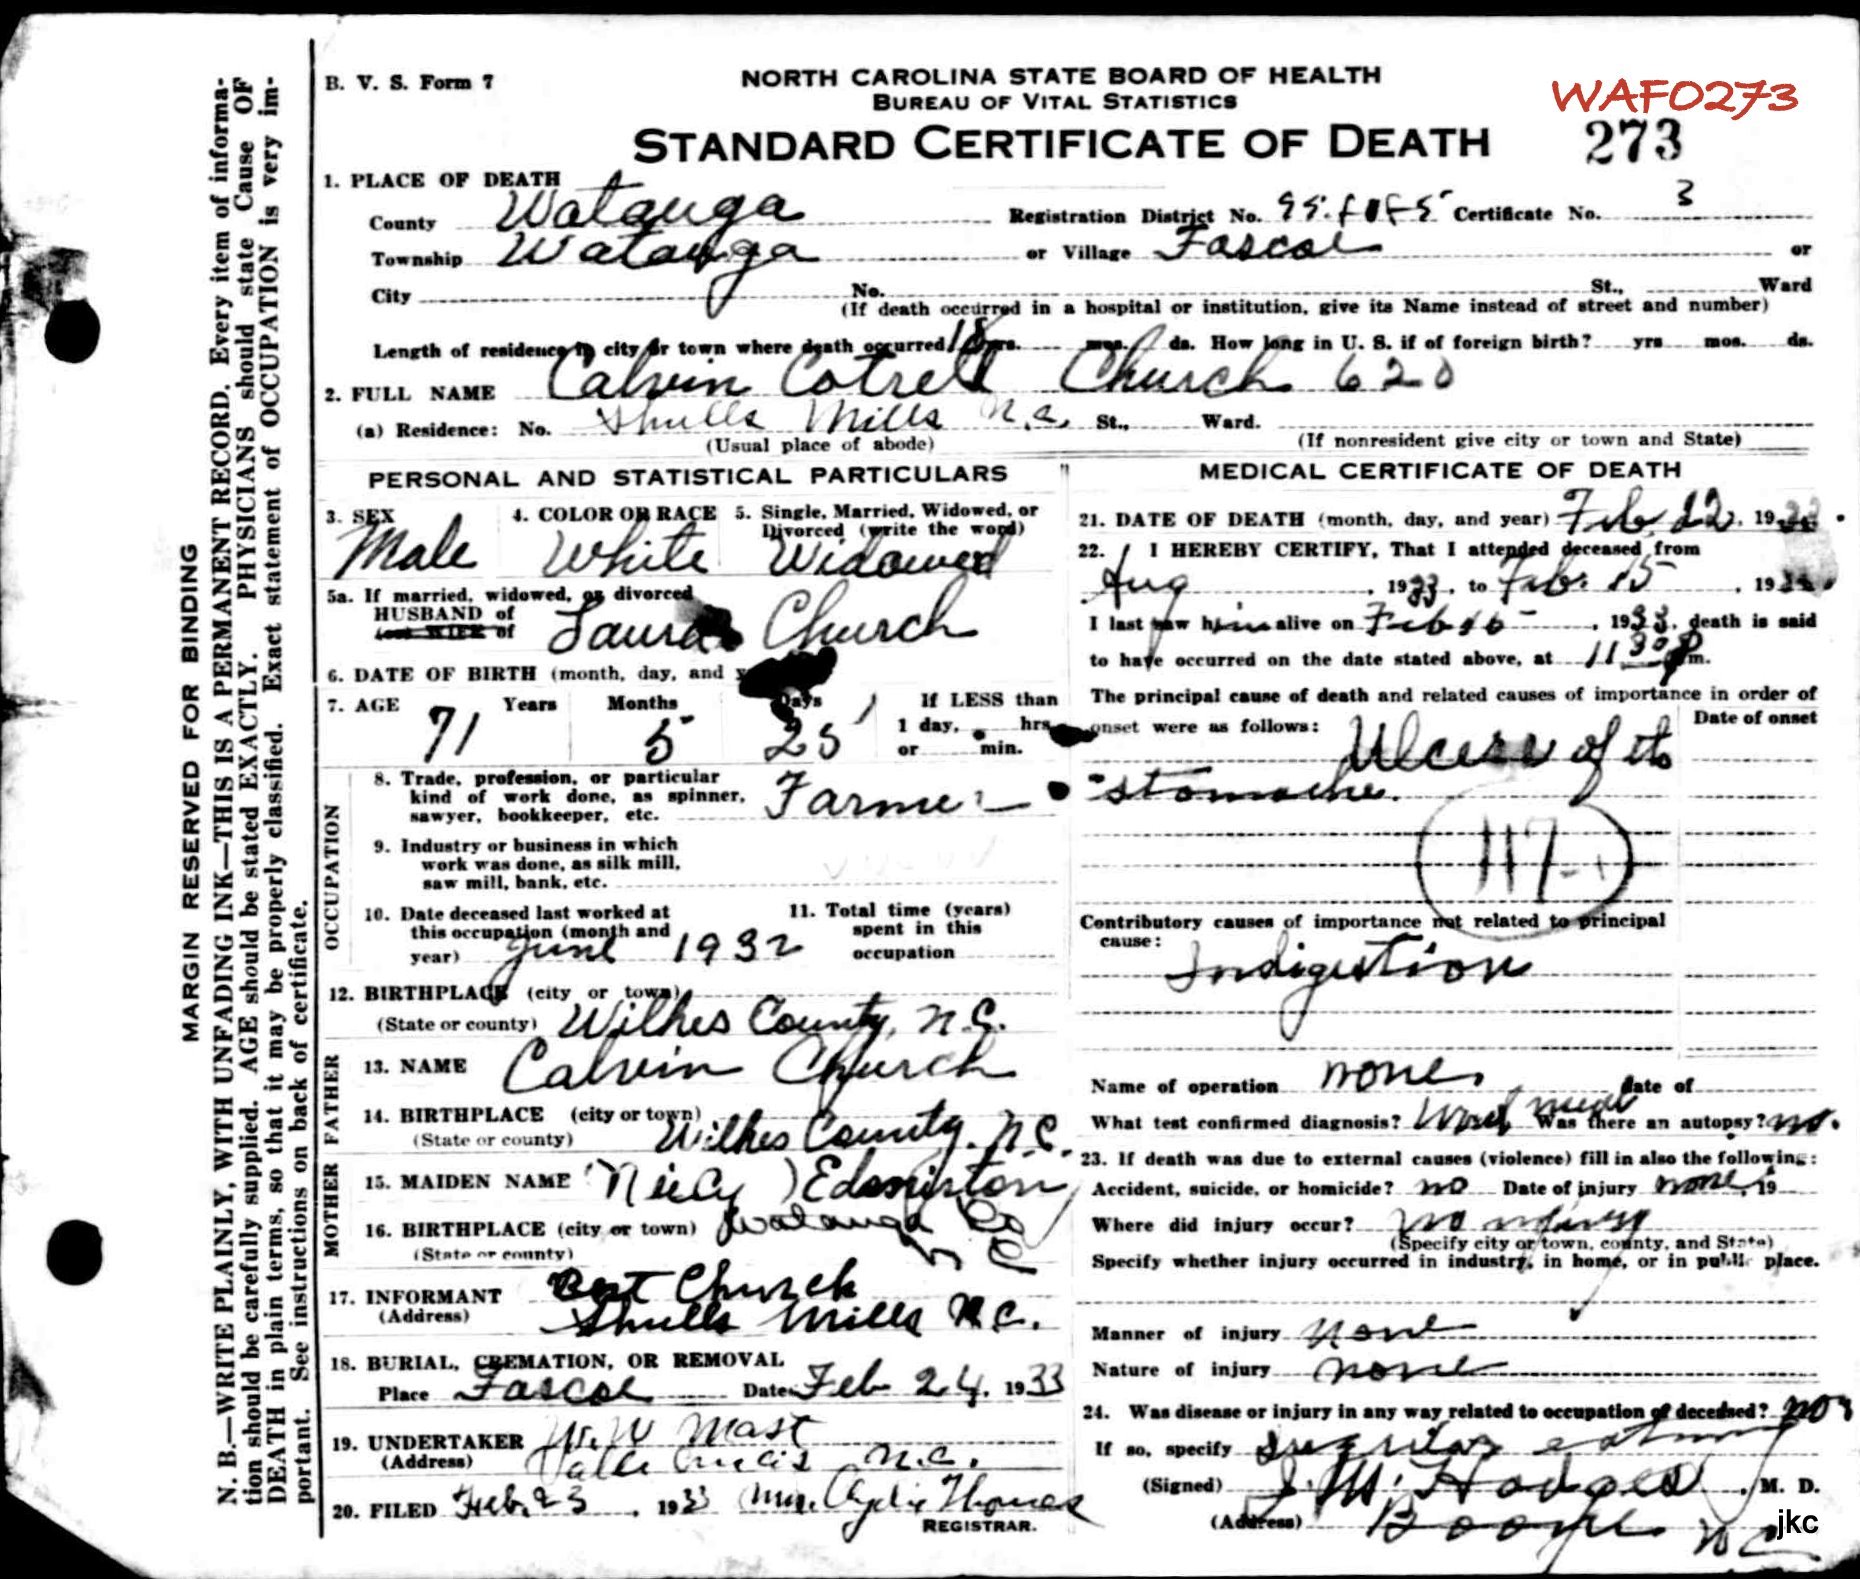 B. V. S. Form 7
NORTH CAROLINA STATE BOARD OF HEALTH
WAF0273
BUREAU OF VITAL STATISTICS
STANDARD CERTIFICATE OF DEATH 273
1. PLACE OF DEATH
County Watauga Registration District No. Certificate No. 3
Township Watauga or Village Foscoe or
City No. St., Ward
(If death occurred in a hospital or institution, give its Name instead of street and number)
Length of residence in city or town where death occurred 18 yrs. mos. ds. How long in U. S. if of foreign birth? yrs mos. ds.
2. FULL NAME Calvin Cotrell Church 620
(a) Residence: No. Shulls Mills N.C. St., Ward.
(Usual place of abode) (If nonresident give city or town and State)
PERSONAL AND STATISTICAL PARTICULARS
3. SEX 4. COLOR OR RACE 5. Single, Married, Widowed, or
Divorced (write the word)
Male White Widowed
5a. If married, widowed, or divorced
HUSBAND of
(or) WIFE of Laura Church
6. DATE OF BIRTH (month, day, and
7. AGE Years Months Days If LESS than
1 day, hrs.
or min.
71 5 25
OCCUPATION
8. Trade, profession, or particular
kind of work done, as spinner,
sawyer, bookkeeper, etc. Farmer
9. Industry or business in which
work was done, as silk mill,
saw mill, bank, etc.
10. Date deceased last worked at
this occupation (month and
year) June 1932
11. Total time (years)
spent in this
occupation
12. BIRTHPLACE (city or town)
(State or county) Wilkes County, N.C.
FATHER
13. NAME Calvin Church
14. BIRTHPLACE (city or town)
(State or county) Wilkes County, N.C.
MOTHER
15. MAIDEN NAME (Nicy) Edmiston
16. BIRTHPLACE (city or town) Watauga Co
(State or county) N C
17. INFORMANT Bert Church
(Address) Shulls Mills N.C.
18. BURIAL, CREMATION, OR REMOVAL
Place Foscoe Date Feb 24, 1933
19. UNDERTAKER W.W Mast
(Address) Valle Crucis N.C.
20. FILED Feb. 23, 1933 Mrs. Thomas
REGISTRAR.
MEDICAL CERTIFICATE OF DEATH
21. DATE OF DEATH (month, day, and year) Feb. 22, 1933
22. I HEREBY CERTIFY, That I attended deceased from
Aug, 1933, to Feb. 15, 19
I last saw him alive on Feb 15, 1933, death is said
to have occurred on the date stated above, at 11 30 P m.
The principal cause of death and related causes of importance in order of
onset were as follows: Date of onset
Ulcers of the
stomache.
117-1
Contributory causes of importance not related to principal
cause:
Indigestion
Name of operation none date of
What test confirmed diagnosis? meal Was there an autopsy? no.
23. If death was due to external causes (violence) fill in also the following:
Accident, suicide, or homicide? no Date of injury none, 19
Where did injury occur? no injury
(Specify city or town, county, and State)
Specify whether injury occurred in industry, in home, or in public place.
Manner of injury none
Nature of injury none
24. Was disease or injury in any way related to occupation of deceased? no
If so, specify eating
(Signed) J. M. Hodges, M. D.
(Address) Boone N C
jkc
MARGIN RESERVED FOR BINDING
N. B.—WRITE PLAINLY, WITH UNFADING INK—THIS IS A PERMANENT RECORD. Every item of informa-
tion should be carefully supplied. AGE should be stated EXACTLY. PHYSICIANS should state Cause OF
DEATH in plain terms, so that it may be properly classified. Exact statement of OCCUPATION is very im-
portant. See instructions on back of certificate.